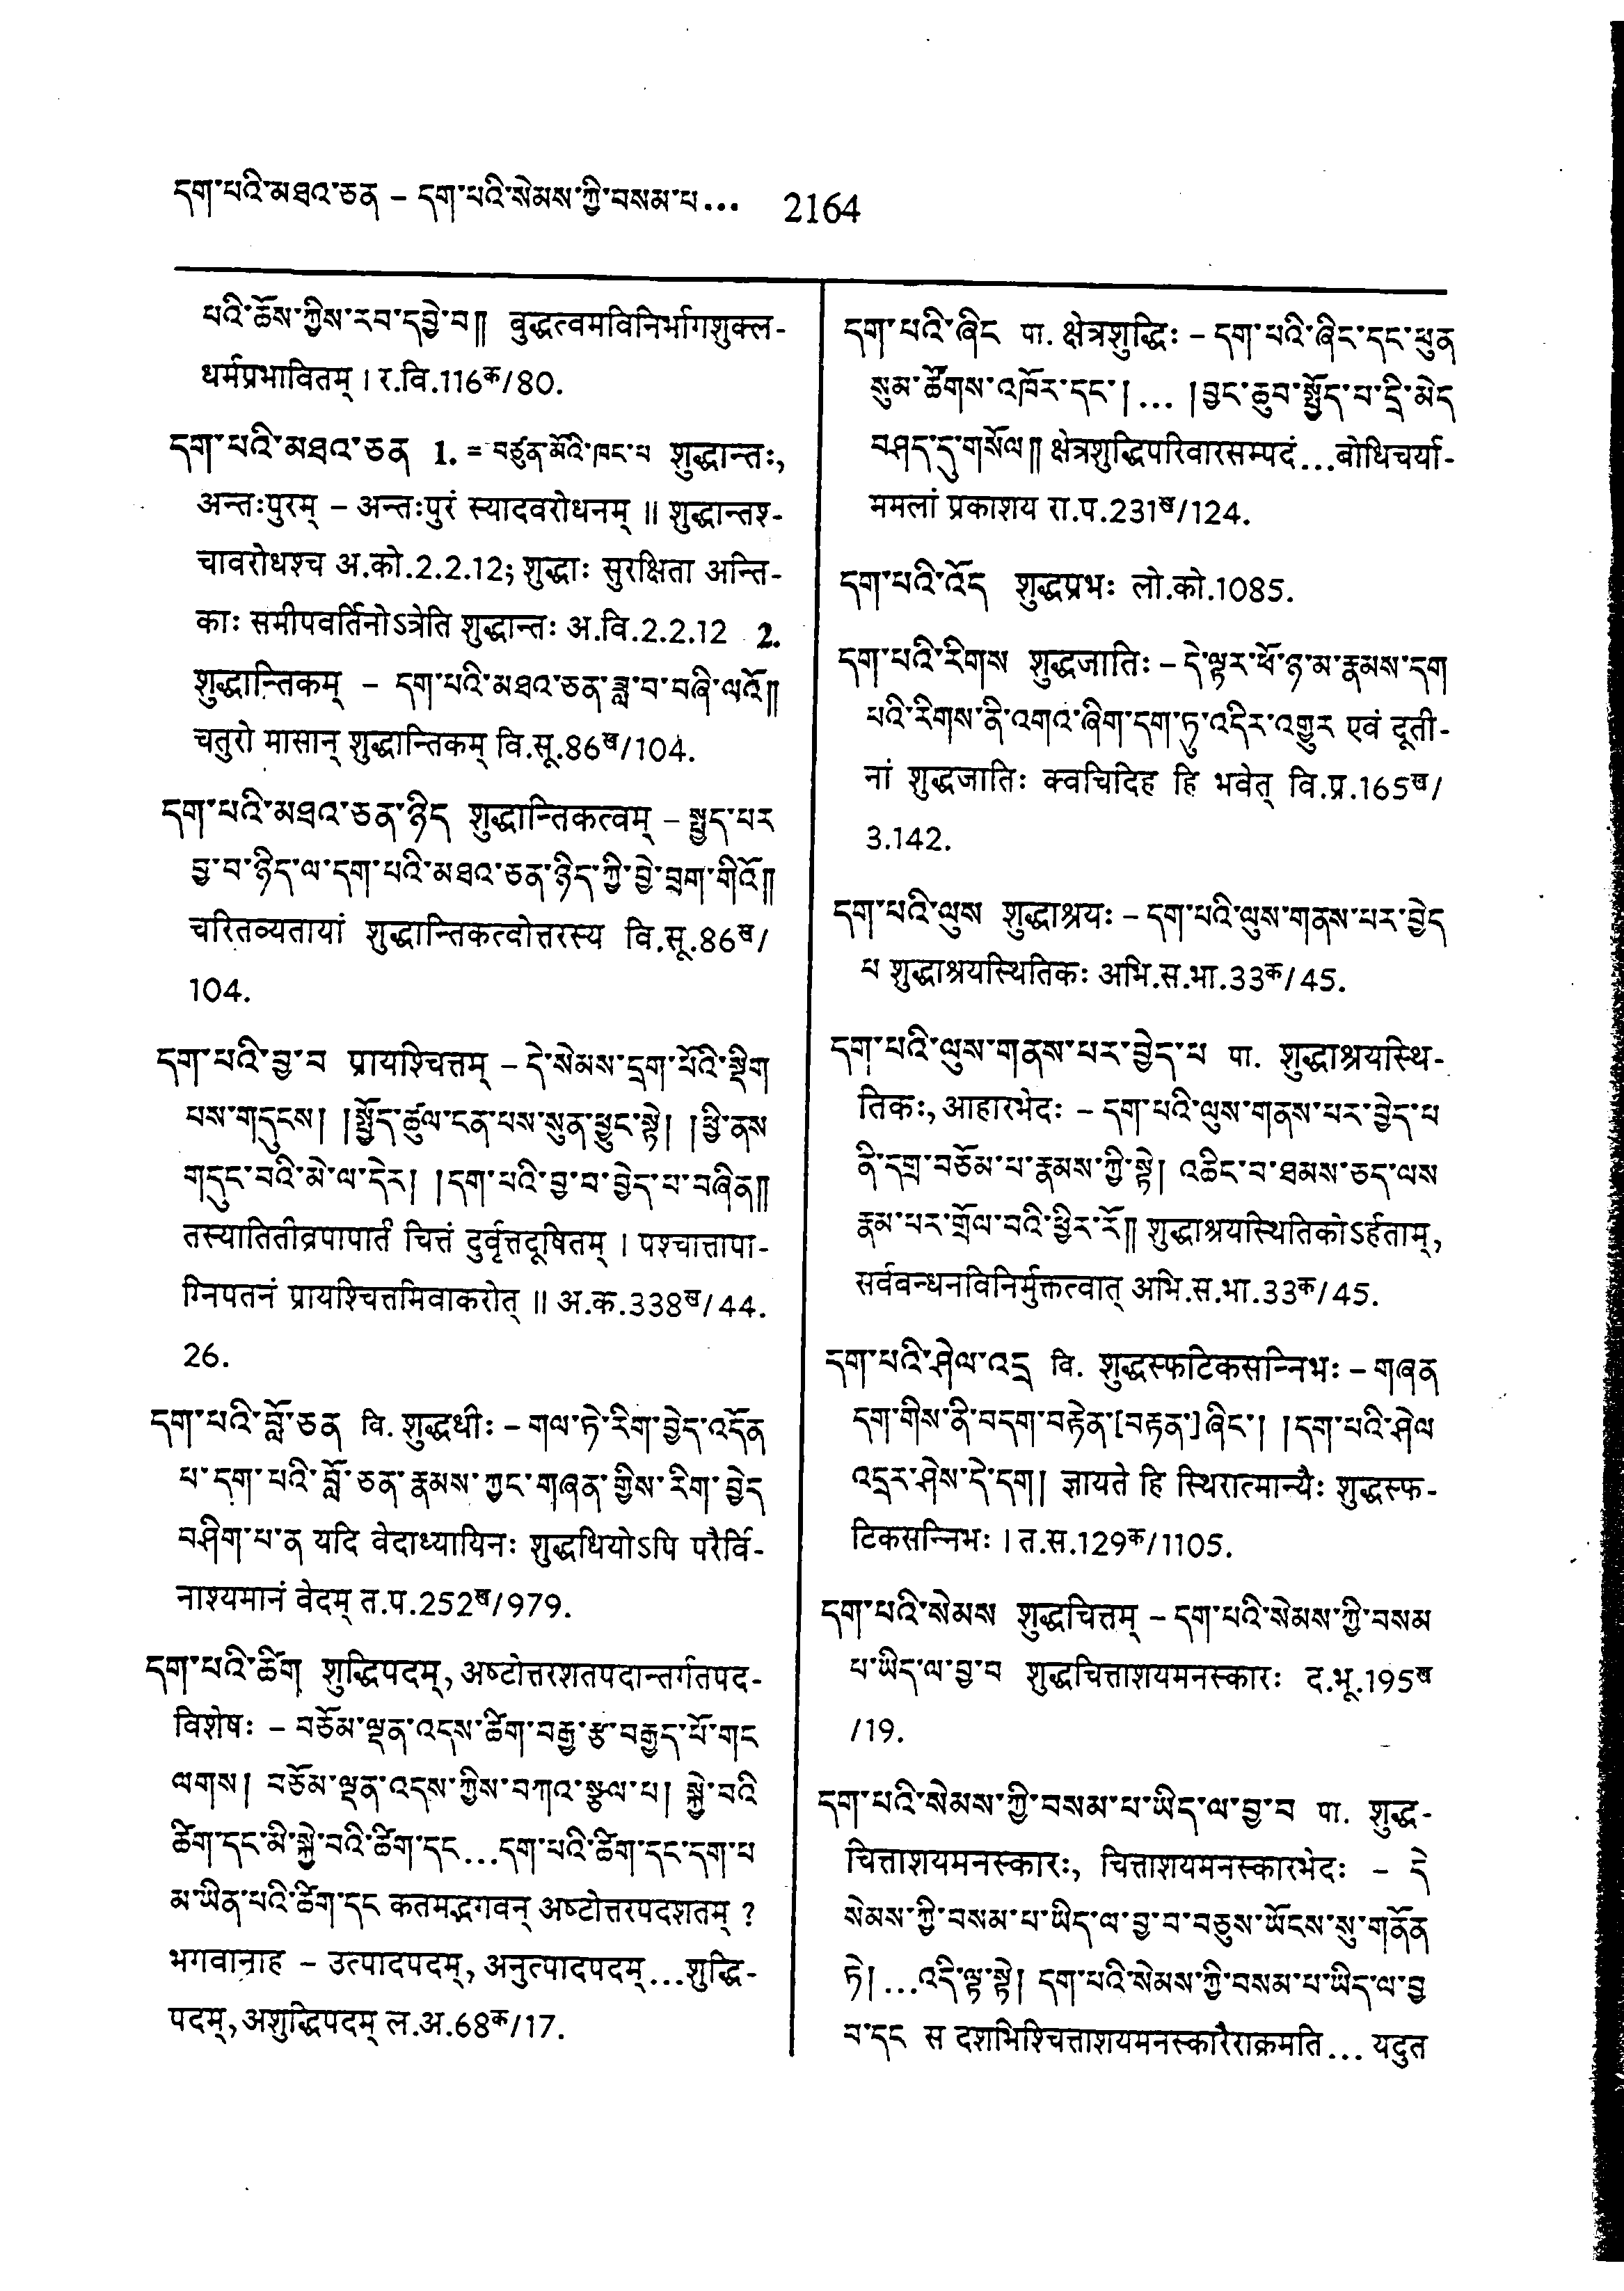 དག་པའི་མཐའ་ཅན – དག་པའི་སེམས་ཀྱི་བསམ་པ... 2164
པའི་ཆོས་ཀྱིས་རབ་དབྱེ་བ།། बुद्धत्वमविनिर्भागशुक्ल-
धर्मप्रभावितम् । र.वि.116क/80.
དག་པའི་མཐའ་ཅན 1. = བཙུན་མོའི་ཁང་པ शुद्धान्तः,
अन्तःपुरम् – अन्तःपुरं स्यादवरोधनम् ॥ शुद्धान्तश्-
चावरोधश्च अ.को.2.2.12; शुद्धाः सुरक्षिता अन्ति-
काः समीपवर्तिनोऽत्रेति शुद्धान्तः अ.वि.2.2.12 2.
शुद्धान्तिकम् – དག་པའི་མཐའ་ཅན་ཟླ་བ་བཞི་ལའོ།།
चतुरो मासान् शुद्धान्तिकम् वि.सू.86ख/104.
དག་པའི་མཐའ་ཅན་ཉིད शुद्धान्तिकत्वम् – སྤྱད་པར
བྱ་བ་ཉིད་ལ་དག་པའི་མཐའ་ཅན་ཉིད་ཀྱི་བྱེ་བྲག་གིའོ།།
चरितव्यतायां शुद्धान्तिकत्वोत्तरस्य वि.सू.86ख/
104.
དག་པའི་བྱ་བ प्रायश्चित्तम् – དེ་སེམས་དྲག་པོའི་སྡིག
པས་གདུངས། །སྤྱོད་ཚུལ་ངན་པས་སུན་ཕྱུང་སྟེ། །ཕྱི་ནས
གདུང་བའི་མེ་ལ་དེར། །དག་པའི་བྱ་བ་བྱེད་པ་བཞིན།།
तस्यातितीव्रपापार्तं चित्तं दुर्वृत्तदूषितम् । पश्चात्तापा-
ग्निपतनं प्रायश्चित्तमिवाकरोत् ॥ अ.क.338ख/44.
26.
དག་པའི་བློ་ཅན वि. शुद्धधीः – གལ་ཏེ་རིག་བྱེད་འདོན
པ་དག་པའི་བློ་ཅན་རྣམས་ཀྱང་གཞན་གྱིས་རིག་བྱེད
བཤིག་པ་ན यदि वेदाध्यायिनः शुद्धधियोऽपि परैर्वि-
नाश्यमानं वेदम् त.प.252ख/979.
དག་པའི་ཚིག शुद्धिपदम्, अष्टोत्तरशतपदान्तर्गतपद-
विशेषः – བཅོམ་ལྡན་འདས་ཚིག་བརྒྱ་རྩ་བརྒྱད་པོ་གང
ལགས། བཅོམ་ལྡན་འདས་ཀྱིས་བཀའ་སྩལ་པ། སྐྱེ་བའི
ཚིག་དང་མི་སྐྱེ་བའི་ཚིག་དང...དག་པའི་ཚིག་དང་དག་པ
མ་ཡིན་པའི་ཚིག་དང कतमद्भगवन् अष्टोत्तरपदशतम् ?
भगवानाह – उत्पादपदम्, अनुत्पादपदम्...शुद्धि-
पदम्, अशुद्धिपदम् ल.अ.68क/17.
དག་པའི་ཞིང पा. क्षेत्रशुद्धिः – དག་པའི་ཞིང་དང་ཕུན
སུམ་ཚོགས་འཁོར་དང་།... །བྱང་ཆུབ་སྤྱོད་པ་དྲི་མེད
བཤད་དུ་གསོལ།། क्षेत्रशुद्धिपरिवारसम्पदं...बोधिचर्या-
ममलां प्रकाशय रा.प.231ख/124.
དག་པའི་འོད शुद्धप्रभः लो.को.1085.
དག་པའི་རིགས शुद्धजातिः – དེ་ལྟར་ཕོ་ཉ་མ་རྣམས་དག
པའི་རིགས་ནི་འགའ་ཞིག་དག་ཏུ་འདིར་འགྱུར एवं दूती-
नां शुद्धजातिः क्वचिदिह हि भवेत् वि.प्र.165ख/
3.142.
དག་པའི་ལུས शुद्धाश्रयः – དག་པའི་ལུས་གནས་པར་བྱེད
པ शुद्धाश्रयस्थितिकः अभि.स.भा.33क/45.
དག་པའི་ལུས་གནས་པར་བྱེད་པ पा. शुद्धाश्रयस्थि-
तिकः, आहारभेदः – དག་པའི་ལུས་གནས་པར་བྱེད་པ
ནི་དགྲ་བཅོམ་པ་རྣམས་ཀྱི་སྟེ། འཆིང་བ་ཐམས་ཅད་ལས
རྣམ་པར་གྲོལ་བའི་ཕྱིར་རོ།། शुद्धाश्रयस्थितिकोऽर्हताम्,
सर्वबन्धनविनिर्मुक्तत्वात् अभि.स.भा.33क/45.
དག་པའི་ཤེལ་འདྲ वि. शुद्धस्फटिकसन्निभः – གཞན
དག་གིས་ནི་བདག་བརྟེན་[བརྟན་]ཞིང་། །དག་པའི་ཤེལ
འདྲར་ཤེས་དེ་དག། ज्ञायते हि स्थिरात्मान्यैः शुद्धस्फ-
टिकसन्निभः । त.स.129क/1105.
དག་པའི་སེམས शुद्धचित्तम् – དག་པའི་སེམས་ཀྱི་བསམ
པ་ཡིད་ལ་བྱ་བ शुद्धचित्ताशयमनस्कारः द.भू.195ख
/19.
དག་པའི་སེམས་ཀྱི་བསམ་པ་ཡིད་ལ་བྱ་བ पा. शुद्ध-
चित्ताशयमनस्कारः, चित्ताशयमनस्कारभेदः – དེ
སེམས་ཀྱི་བསམ་པ་ཡིད་ལ་བྱ་བ་བཅུས་ཡོངས་སུ་གནོན
ཏེ།...འདི་ལྟ་སྟེ། དག་པའི་སེམས་ཀྱི་བསམ་པ་ཡིད་ལ་བྱ
བ་དང स दशभिश्चित्ताशयमनस्कारैराक्रमति... यदुत